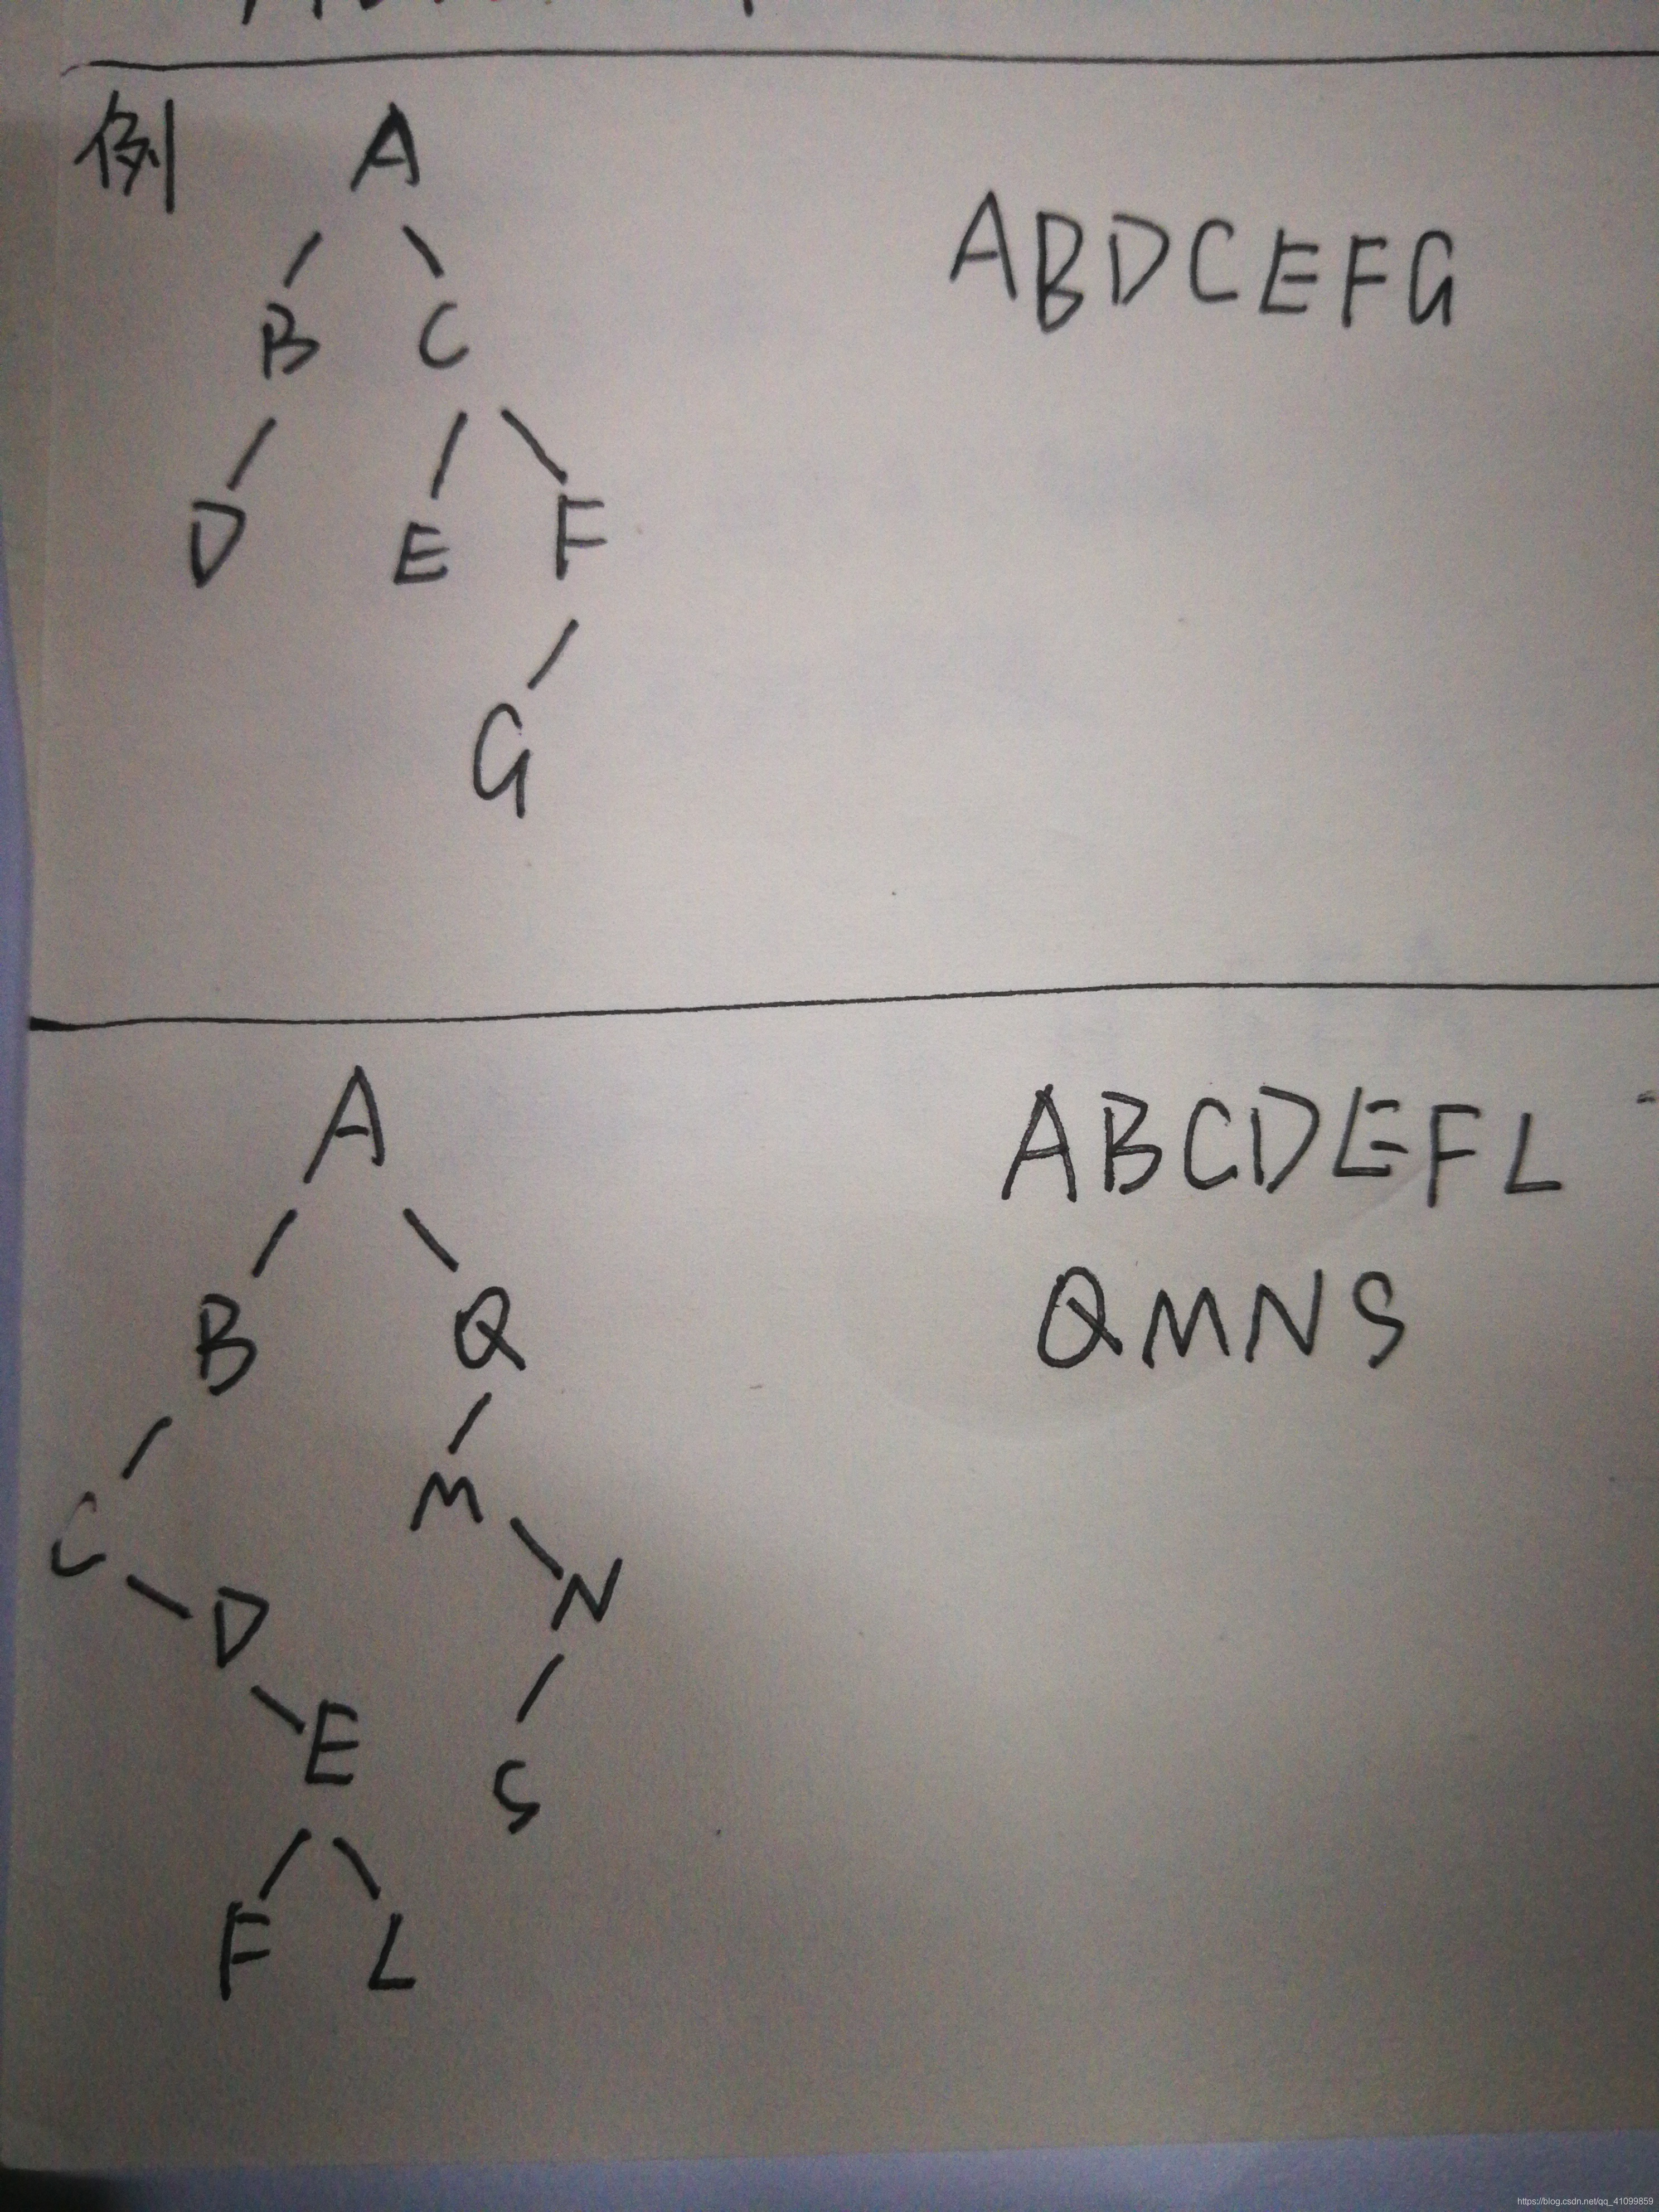 例
A
ABDCEFG
B C
D E F
G
A
ABCDEFL
B Q
QMNS
C M
D N
E S
F L
https://blog.csdn.net/qq_41099859